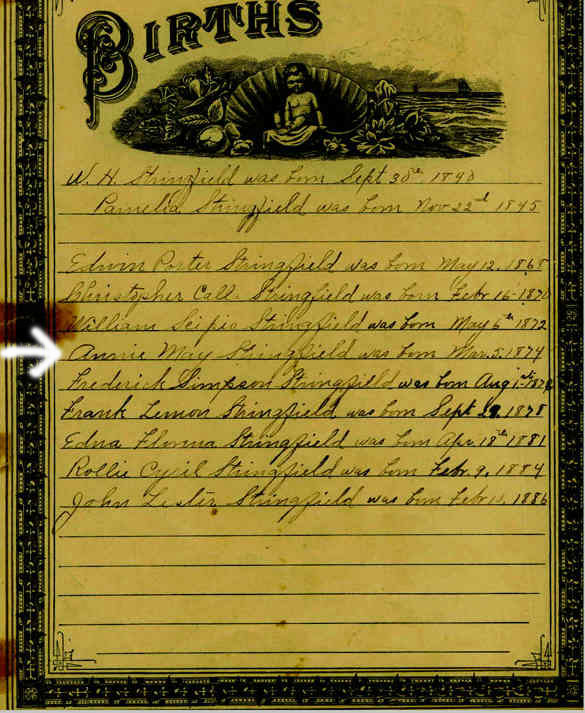 BIRTHS
W. H. Stringfield was born Sept 30th 1840
Pamelia Stringfield was born Nov 22d 1845
Edwin Porter Stringfield was born May 12, 1868
Christopher Call Stringfield was born Febr 16 1870
William Scipio Stringfield was born May 6th 1872
Annie May Stringfield was born Mar. 5, 1874
Frederick Simpson Stringfield was born Aug 1st
Frank Lemon Stringfield was born Sept 1878
Edna Stringfield was born Apr 18th 1881
Rollie Cycil Stringfield was born Febr. 9, 1884
John Lester Stringfield was born Febr 1886